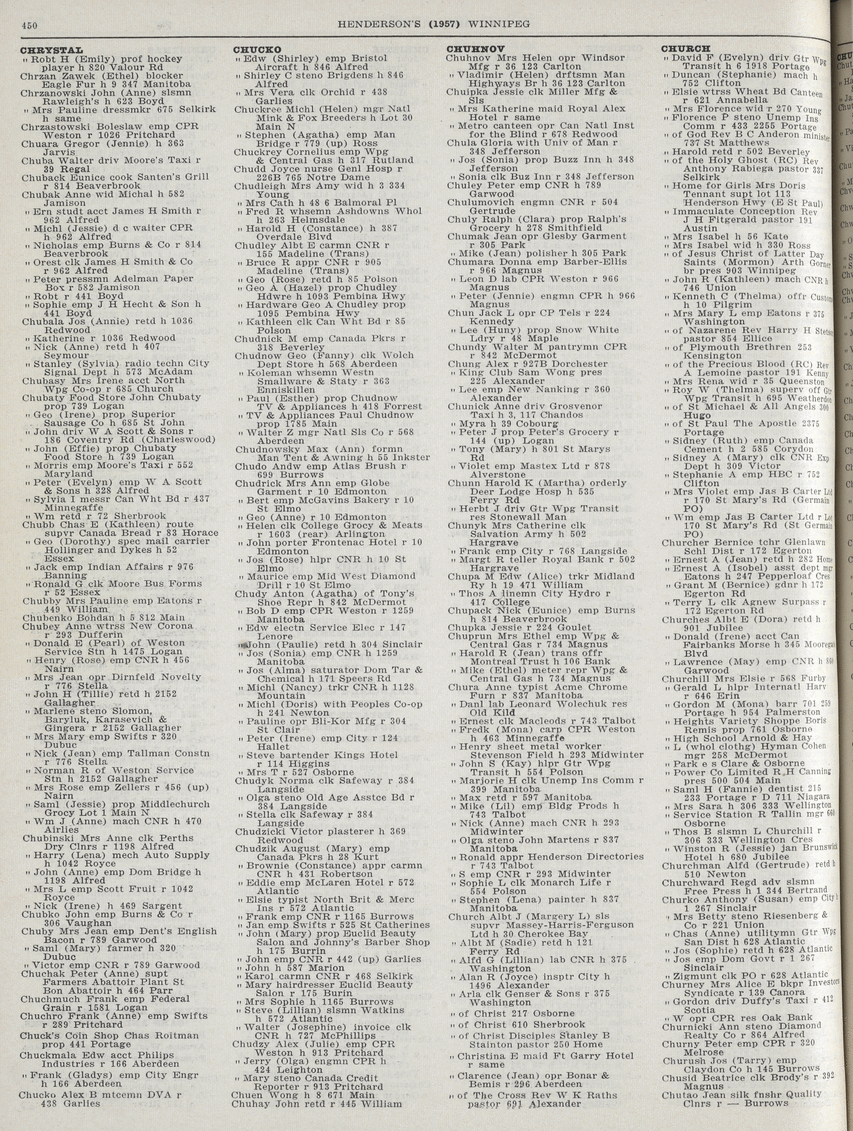 450
HENDERSON'S (1957) WINNIPEG
CHRYSTAL
" Robt H (Emily) prof hockey
player h 820 Valour Rd
Chrzan Zawek (Ethel) blocker
Eagle Fur h 9 347 Manitoba
Chrzanowski John (Anne) slsmn
Rawleigh's h 623 Boyd
" Mrs Pauline dressmkr 675 Selkirk
h same
Chrzastowski Boleslaw emp CPR
Weston r 1026 Pritchard
Chuara Gregor (Jennie) h 363
Jarvis
Chuba Walter driv Moore's Taxi r
39 Regal
Chuback Eunice cook Santen's Grill
r 814 Beaverbrook
Chubak Anne wid Michal h 582
Jamison
" Ern studt acct James H Smith r
962 Alfred
" Michl (Jessie) d c waiter CPR
h 962 Alfred
" Nicholas emp Burns & Co r 814
Beaverbrook
" Orest clk James H Smith & Co
r 962 Alfred
" Peter pressmn Adelman Paper
Box r 582 Jamison
" Robt r 441 Boyd
" Sophie emp J H Hecht & Son h
441 Boyd
Chubala Jos (Annie) retd h 1036
Redwood
" Katherine r 1036 Redwood
" Nick (Anne) retd h 407
Seymour
" Stanley (Sylvia) radio techn City
Signal Dept h 573 McAdam
Chubasy Mrs Irene acct North
Wpg Co-op r 685 Church
Chubaty Food Store John Chubaty
prop 739 Logan
" Geo (Irene) prop Superior
Sausage Co h 685 St John
" John driv W A Scott & Sons r
186 Coventry Rd (Charleswood)
" John (Effie) prop Chubaty
Food Store h 739 Logan
" Morris emp Moore's Taxi r 552
Maryland
" Peter (Evelyn) emp W A Scott
& Sons h 328 Alfred
" Sylvia I messr Can Wht Bd r 437
Minnegaffe
" Wm retd r 72 Sherbrook
Chubb Chas E (Kathleen) route
supvr Canada Bread r 83 Horace
" Geo (Dorothy) spec mail carrier
Hollinger and Dykes h 52
Essex
" Jack emp Indian Affairs r 976
Banning
" Ronald G clk Moore Bus Forms
r 52 Essex
Chubby Mrs Pauline emp Eatons r
449 William
Chubenko Bohdan h 5 812 Main
Chubey Anne wtrss New Corona
r 293 Dufferin
" Donald E (Pearl) of Weston
Service Stn h 1475 Logan
" Henry (Rose) emp CNR h 456
Nairn
" Mrs Jean opr Dirnfeld Novelty
r 776 Stella
" John H (Tillie) retd h 2152
Gallagher
" Marlene steno Slomon,
Baryluk, Karasevich &
Gingera r 2152 Gallagher
" Mrs Mary emp Swifts r 320
Dubuc
" Nick (Jean) emp Tallman Constn
r 776 Stella
" Norman R of Weston Service
Stn h 2152 Gallagher
" Mrs Rose emp Zellers r 456 (up)
Nairn
" Saml (Jessie) prop Middlechurch
Grocy Lot 1 Main N
" Wm J (Anne) mach CNR h 470
Airlies
Chubinski Mrs Anne clk Perths
Dry Clnrs r 1198 Alfred
" Harry (Lena) mech Auto Supply
h 1042 Royce
" John (Anne) emp Dom Bridge h
1198 Alfred
" Mrs L emp Scott Fruit r 1042
Royce
" Nick (Irene) h 469 Sargent
Chubko John emp Burns & Co r
306 Vaughan
Chuby Mrs Jean emp Dent's English
Bacon r 789 Garwood
" Saml (Mary) farmer h 320
Dubuc
" Victor emp CNR r 789 Garwood
Chuchak Peter (Anne) supt
Farmers Abattoir Plant St
Bon Abattoir h 464 Parr
Chuchmuch Frank emp Federal
Grain r 1581 Logan
Chuchro Frank (Anne) emp Swifts
r 289 Pritchard
Chuck's Coin Shop Chas Roitman
prop 441 Portage
Chuckmala Edw acct Philips
Industries r 166 Aberdeen
" Frank (Gladys) emp City Engr
h 166 Aberdeen
Chucko Alex B mtcemn DVA r
438 Garlies
CHUCKO
" Edw (Shirley) emp Bristol
Aircraft h 846 Alfred
" Shirley C steno Brigdens h 846
Alfred
" Mrs Vera clk Orchid r 438
Garlies
Chuckree Michl (Helen) mgr Natl
Mink & Fox Breeders h Lot 30
Main N
" Stephen (Agatha) emp Man
Bridge r 779 (up) Ross
Chuckrey Cornelius emp Wpg
& Central Gas h 317 Rutland
Chudd Joyce nurse Genl Hosp r
226B 765 Notre Dame
Chudleigh Mrs Amy wid h 3 334
Young
" Mrs Cath h 48 6 Balmoral Pl
" Fred R whsemn Ashdowns Whol
h 263 Helmsdale
" Harold H (Constance) h 387
Overdale Blvd
Chudley Albt E carmn CNR r
155 Madeline (Trans)
" Bruce R appr CNR r 905
Madeline (Trans)
" Geo (Rose) retd h 85 Polson
" Geo A (Hazel) prop Chudley
Hdwre h 1093 Pembina Hwy
" Hardware Geo A Chudley prop
1095 Pembina Hwy
" Kathleen clk Can Wht Bd r 85
Polson
Chudnick M emp Canada Pkrs r
318 Beverley
Chudnow Geo (Fanny) clk Wolch
Dept Store h 568 Aberdeen
" Koleman whsemn Westn
Smallware & Staty r 363
Enniskillen
" Paul (Esther) prop Chudnow
TV & Appliances h 418 Forrest
" TV & Appliances Paul Chudnow
prop 1785 Main
" Walter Z mgr Natl Sls Co r 568
Aberdeen
Chudnowsky Max (Ann) formn
Man Tent & Awning h 55 Inkster
Chudo Andw emp Atlas Brush r
699 Burrows
Chudrick Mrs Ann emp Globe
Garment r 10 Edmonton
" Bert emp McGavins Bakery r 10
St Elmo
" Geo (Anne) r 10 Edmonton
" Helen clk College Grocy & Meats
r 1603 (rear) Arlington
" John porter Frontenac Hotel r 10
Edmonton
" Jos (Rose) hlpr CNR h 10 St
Elmo
" Maurice emp Mid West Diamond
Drill r 10 St Elmo
Chudy Anton (Agatha) of Tony's
Shoe Repr h 842 McDermot
" Bob D emp CPR Weston r 1259
Manitoba
" Edw electn Service Elec r 147
Lenore
" John (Paulie) retd h 304 Sinclair
" Jos (Sonia) emp CNR h 1259
Manitoba
" Jos (Alma) saturator Dom Tar &
Chemical h 171 Speers Rd
" Michl (Nancy) trkr CNR h 1128
Mountain
" Michl (Doris) with Peoples Co-op
h 241 Newton
" Pauline opr Bli-Kor Mfg r 304
St Clair
" Peter (Irene) emp City r 124
Hallet
" Steve bartender Kings Hotel
r 114 Higgins
" Mrs T r 527 Osborne
Chudyk Norma clk Safeway r 384
Langside
" Olga steno Old Age Asstce Bd r
384 Langside
" Stella clk Safeway r 384
Langside
Chudzicki Victor plasterer h 369
Redwood
Chudzik August (Mary) emp
Canada Pkrs h 28 Kurt
" Brownie (Constance) appr carmn
CNR h 431 Robertson
" Eddie emp McLaren Hotel r 572
Atlantic
" Elsie typist North Brit & Merc
Ins r 572 Atlantic
" Frank emp CNR r 1165 Burrows
" Jan emp Swifts r 525 St Catherines
" John (Mary) prop Euclid Beauty
Salon and Johnny's Barber Shop
h 175 Burrin
" John emp CNR r 442 (up) Garlies
" John h 587 Marion
" Karol carmn CNR r 468 Selkirk
" Mary hairdresser Euclid Beauty
Salon r 175 Burin
" Mrs Sophie h 1165 Burrows
" Steve (Lillian) slsmn Watkins
h 572 Atlantic
" Walter (Josephine) invoice clk
CNR h 727 McPhillips
Chudzy Alex (Julie) emp CPR
Weston h 913 Pritchard
" Jerry (Olga) engmn CPR h
424 Leighton
" Mary steno Canada Credit
Reporter r 913 Pritchard
Chuen Wong h 8 671 Main
Chuhay John retd r 445 William
CHUHNOV
Chuhnov Mrs Helen opr Windsor
Mfg r 36 123 Carlton
" Vladimir (Helen) drftsmn Man
Highways Br h 36 123 Carlton
Chuipka Jessie clk Miller Mfg &
Sls
" Mrs Katherine maid Royal Alex
Hotel r same
" Metro canteen opr Can Natl Inst
for the Blind r 678 Redwood
Chula Gloria with Univ of Man r
348 Jefferson
" Jos (Sonia) prop Buzz Inn h 348
Jefferson
" Sonia clk Buz Inn r 348 Jefferson
Chuley Peter emp CNR h 789
Garwood
Chulumovich engmn CNR r 504
Gertrude
Chuly Ralph (Clara) prop Ralph's
Grocery h 278 Smithfield
Chumak Jean opr Glesby Garment
r 305 Park
" Mike (Jean) polisher h 305 Park
Chumara Donna emp Barber-Ellis
r 966 Magnus
" Leon D lab CPR Weston r 966
Magnus
" Peter (Jennie) engmn CPR h 966
Magnus
Chun Jack L opr CP Tels r 224
Kennedy
" Lee (Huny) prop Snow White
Ldry r 48 Maple
Chundy Walter M pantrymn CPR
r 842 McDermot
Chung Alex r 927B Dorchester
" King Club Sam Wong pres
225 Alexander
" Lee emp New Nanking r 360
Alexander
Chunick Anne driv Grosvenor
Taxi h 3, 117 Chandos
" Myra h 39 Cobourg
" Peter J prop Peter's Grocery r
144 (up) Logan
" Tony (Mary) h 801 St Marys
Rd
" Violet emp Mastex Ltd r 878
Alverstone
Chunn Harold K (Martha) orderly
Deer Lodge Hosp h 535
Ferry Rd
" Herbt J driv Gtr Wpg Transit
res Stonewall Man
Chunyk Mrs Catherine clk
Salvation Army h 502
Hargrave
" Frank emp City r 768 Langside
" Margt R teller Royal Bank r 502
Hargrave
Chupa M Edw (Alice) trkr Midland
Ry h 19 471 William
" Thos A linemn City Hydro r
417 College
Chupack Nick (Eunice) emp Burns
h 814 Beaverbrook
Chupka Jessie r 224 Goulet
Chuprun Mrs Ethel emp Wpg &
Central Gas r 734 Magnus
" Harold R (Jean) trans offr
Montreal Trust h 106 Bank
" Mike (Ethel) meter repr Wpg &
Central Gas h 734 Magnus
Chura Anne typist Acme Chrome
Furn r 837 Manitoba
" Danl lab Leonard Wolechuk res
Old Kild
" Ernest clk Macleods r 743 Talbot
" Fredk (Mona) carp CPR Weston
h 463 Minnegaffe
" Henry sheet metal worker
Stevenson Field h 293 Midwinter
" John S (Kay) hlpr Gtr Wpg
Transit h 554 Polson
" Marjorie H clk Unemp Ins Comm r
399 Manitoba
" Max retd r 597 Manitoba
" Mike (Lil) emp Bldg Prods h
743 Talbot
" Nick (Anne) mach CNR h 293
Midwinter
" Olga steno John Martens r 837
Manitoba
" Ronald appr Henderson Directories
r 743 Talbot
" S emp CNR r 293 Midwinter
" Sophie L clk Monarch Life r
554 Polson
" Stephen (Lena) painter h 837
Manitoba
Church Albt J (Margery L) sls
supvr Massey-Harris-Ferguson
Ltd h 30 Cherokee Bay
" Albt M (Sadie) retd h 121
Ferry Rd
" Alfd G (Lillian) lab CNR h 375
Washington
" Alan R (Joyce) insptr City h
1496 Alexander
" Arla clk Genser & Sons r 375
Washington
" of Christ 217 Osborne
" of Christ 610 Sherbrook
" of Christ Disciples Stanley B
Stainton pastor 250 Home
" Christina E maid Ft Garry Hotel
r same
" Clarence (Jean) opr Bonar &
Bemis r 296 Aberdeen
" of The Cross Rev W K Raths
pastor 691 Alexander
CHURCH
" David F (Evelyn) driv Gtr Wpg
Transit h 6 1918 Portage
" Duncan (Stephanie) mach h
752 Clifton
" Elsie wtrss Wheat Bd Canteen
r 621 Annabella
" Mrs Florence wid r 270 Young
" Florence P steno Unemp Ins
Comm r 433 2255 Portage
" of God Rev B C Anderson minister
737 St Matthews
" Harold retd r 502 Beverley
" of the Holy Ghost (RC) Rev
Anthony Rabiega pastor 337
Selkirk
" Home for Girls Mrs Doris
Tennant supt lot 113
Henderson Hwy (E St Paul)
" Immaculate Conception Rev
J H Fitgerald pastor 191
Austin
" Mrs Isabel h 56 Kate
" Mrs Isabel wid h 330 Ross
" of Jesus Christ of Latter Day
Saints (Mormon) Arth
br pres 903 Winnipeg
" John R (Kathleen) mach CNR h
746 Union
" Kenneth C (Thelma) offr
h 10 Pilgrim
" Mrs Mary L emp Eatons r 375
Washington
" of Nazarene Rev Harry H
pastor 854 Ellice
" of Plymouth Brethren 253
Kensington
" of the Precious Blood (RC) Rev
A Lemoine pastor 191 Kenny
" Mrs Rena wid r 35 Queenston
" Roy W (Thelma) superv off Gtr
Wpg Transit h 695 Weatherdon
" of St Michael & All Angels 300
Hugo
" of St Paul The Apostle 2375
Portage
" Sidney (Ruth) emp Canada
Cement h 2 585 Corydon
" Sidney A (Mary) clk CNR Exp
Dept h 309 Victor
" Stephanie A emp HBC r 752
Clifton
" Mrs Violet emp Jas B Carter Ltd
r 170 St Mary's Rd (Germain
PO)
" Wm emp Jas B Carter Ltd r
170 St Mary's Rd (St Germain
PO)
Churcher Bernice tchr Glenlawn
Schl Dist r 172 Egerton
" Ernest A (Jean) retd h 282 Home
" Ernest A (Isobel) asst dept mgr
Eatons h 247 Pepperloaf Cres
" Grant M (Bernice) gdnr h 172
Egerton Rd
" Terry L clk Agnew Surpass r
172 Egerton Rd
Churches Albt E (Dora) retd h
901 Jubilee
" Donald (Irene) acct Can
Fairbanks Morse h 345
Blvd
" Lawrence (May) emp CNR h
Garwood
Churchill Mrs Elsie r 568 Furby
" Gerald L hlpr Internatl Harv
r 646 Erin
" Gordon M (Mona) barr 701 259
Portage h 954 Palmerston
" Heights Variety Shoppe Boris
Remis prop 761 Osborne
" High School Arnold & Hay
" L (whol clothg) Hyman Cohen
mgr 258 McDermot
" Park e s Clare & Osborne
" Power Co Limited R H Canning
pres 500 504 Main
" Saml H (Fannie) dentist 215
233 Portage r D 711 Niagara
" Mrs Sara h 306 333 Wellington
" Service Station R Tallin mgr
Osborne
" Thos B slsmn L Churchill r
306 333 Wellington Cres
" Winston R (Jessie) jan Brunswick
Hotel h 680 Jubilee
Churchman Alfd (Gertrude) retd h
510 Newton
Churchward Regd adv slsmn
Free Press h 1 344 Bertrand
Churko Anthony (Susan) emp City h
1 267 Sinclair
" Mrs Betty steno Riesenberg &
Co r 221 Union
" Chas (Anne) utilitymn Gtr Wpg
San Dist h 628 Atlantic
" Jos (Sophie) retd h 628 Atlantic
" Jos emp Dom Govt r 1 267
Sinclair
" Zigmunt clk PO r 628 Atlantic
Churney Mrs Alice E bkpr Investors
Syndicate r 139 Canora
" Gordon driv Duffy's Taxi r 412
Scotia
" W opr CPR res Oak Bank
Churnicki Ann steno Diamond
Realty Co r 864 Alfred
Churny Peter emp CPR r 320
Melrose
Churush Jos (Tarry) emp
Claydon Co h 145 Burrows
Chusid Beatrice clk Brody's r 392
Magnus
Chutao Jean silk fnshr Quality
Clnrs r — Burrows